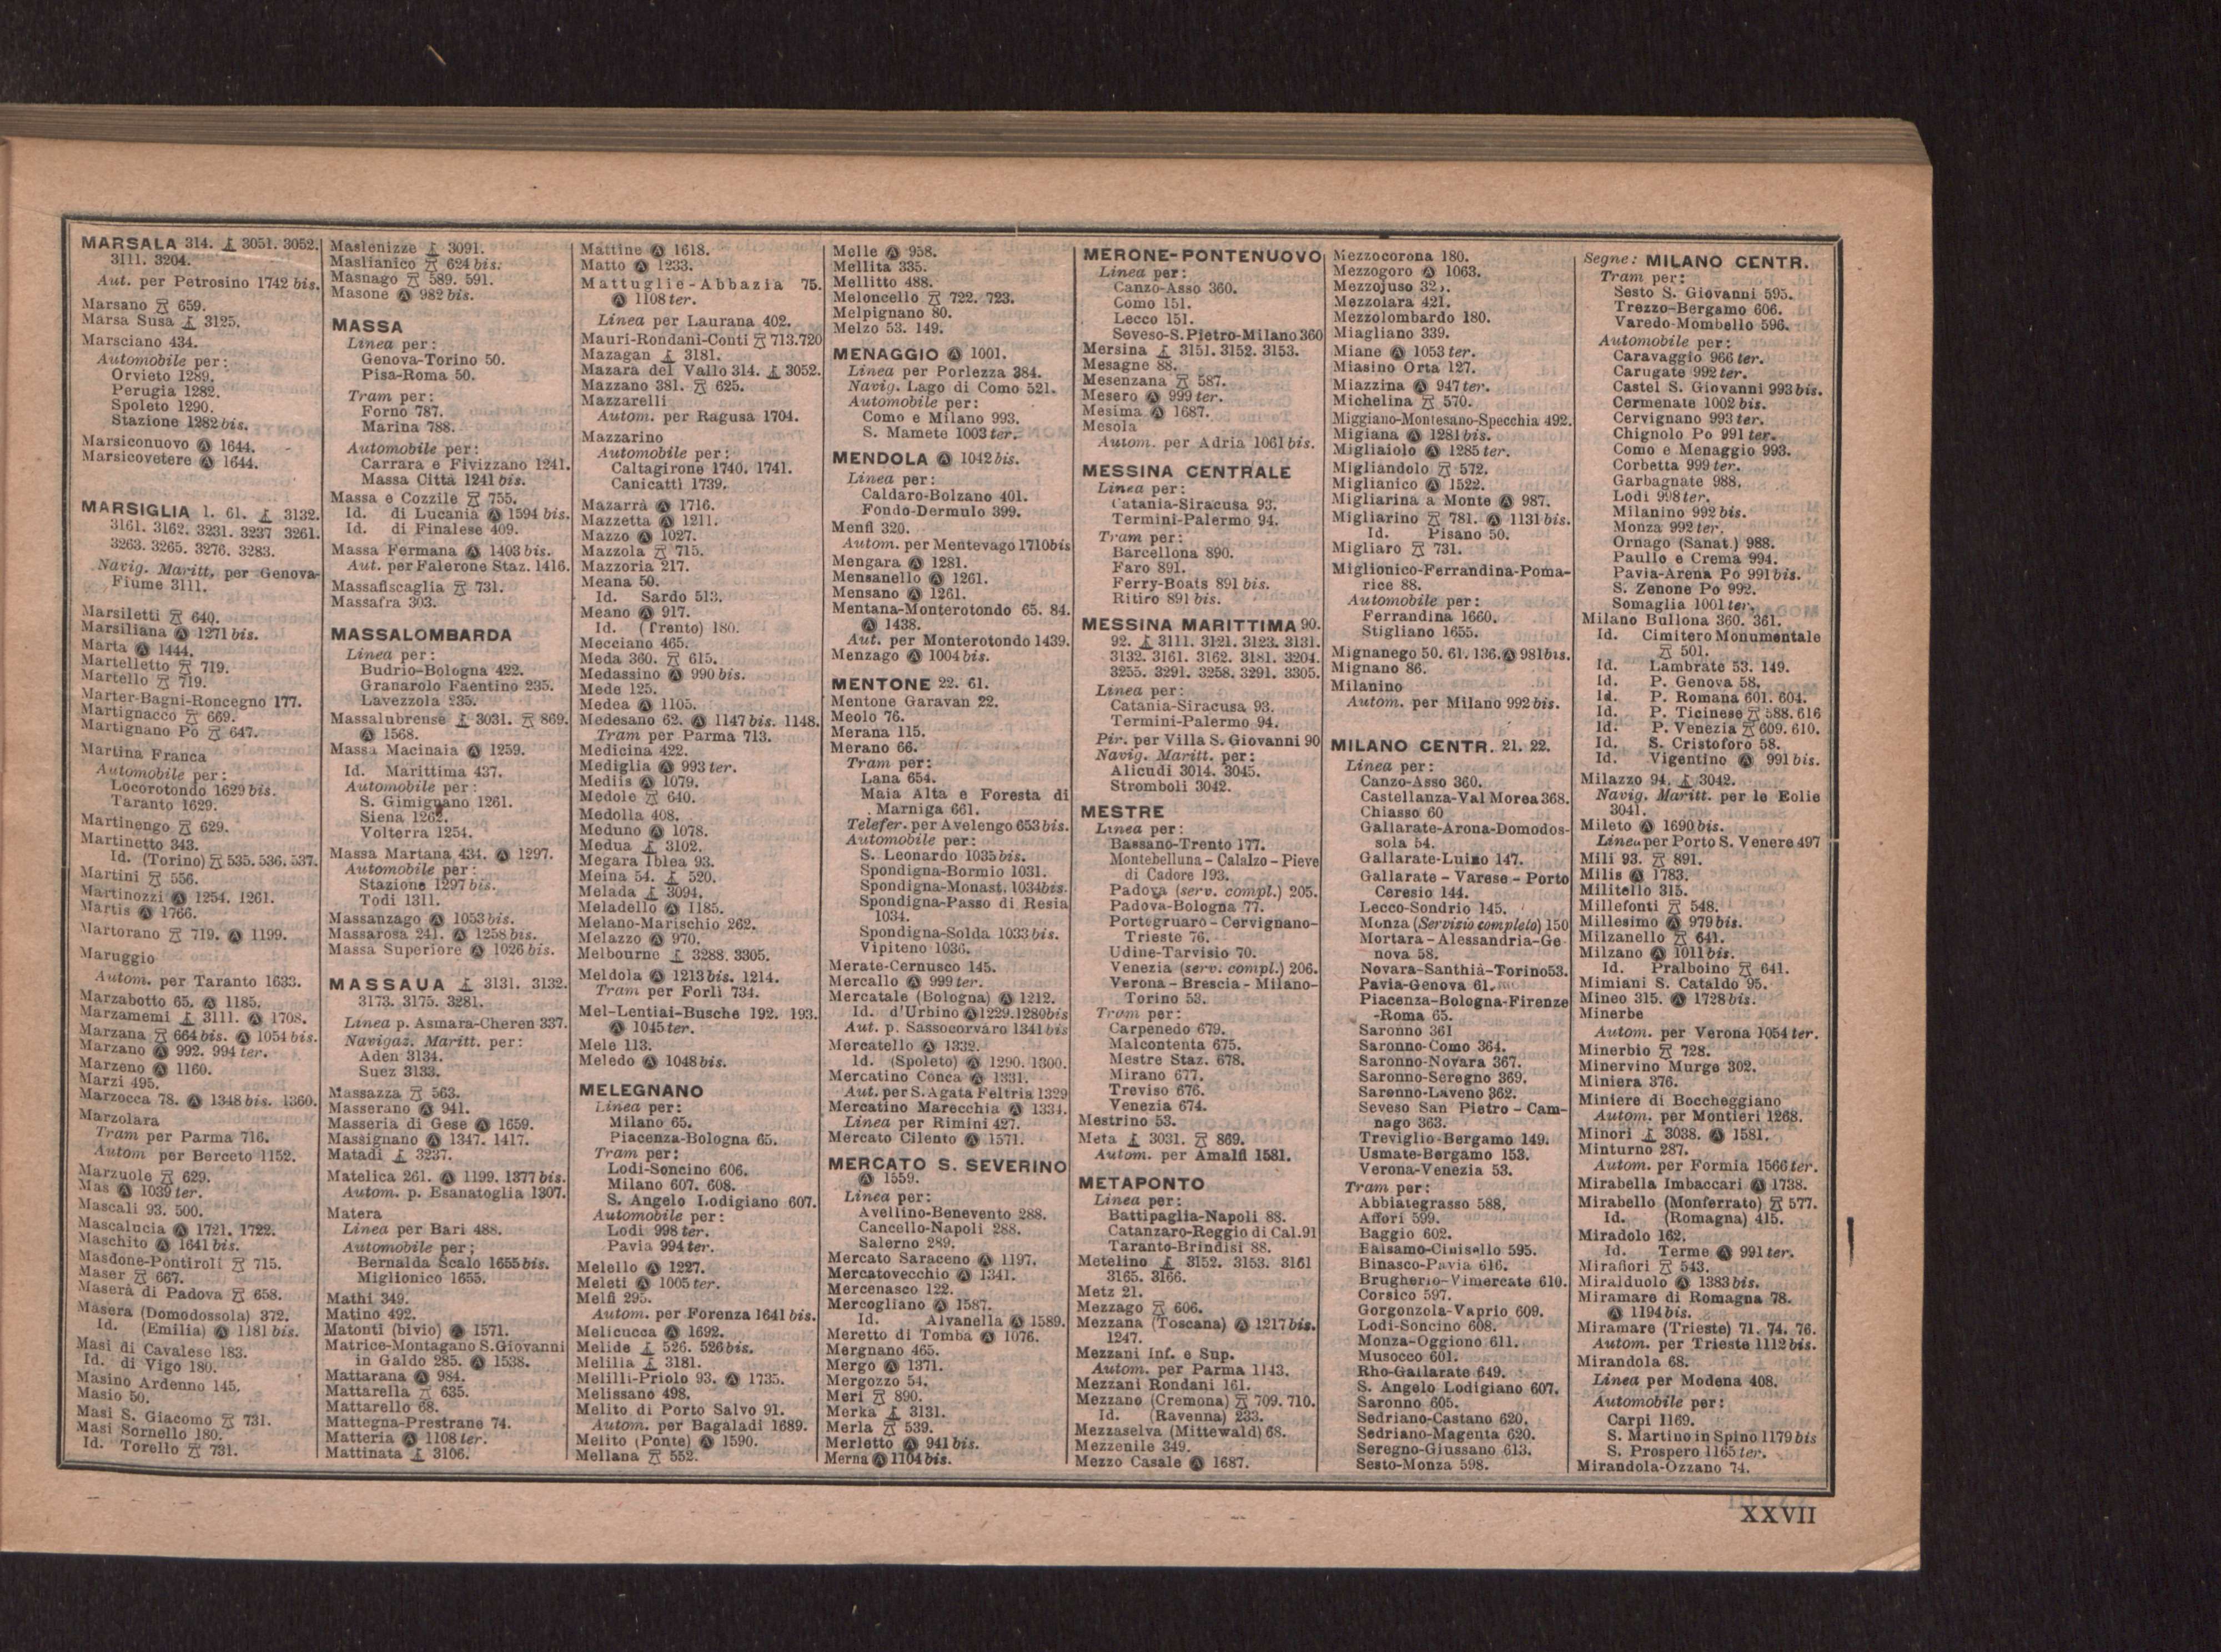 MARSALA 314. 3051. 3052.
3111. 3204.
Aut. per Petrosino 1742 bis.
Marsano 659.
Marsa Susa 3125.
Marsciano 434.
Automobile per:
Orvieto 1289.
Perugia 1282.
Spoleto 1290.
Stazione 1282 bis.
Marsiconuovo Ⓐ 1644.
Marsicovetere Ⓐ 1644.
MARSIGLIA 1. 61. 3132.
3161. 3162. 3231. 3237 3261.
3263. 3265. 3276. 3283.
Navig. Maritt. per Genova-
Fiume 3111.
Marsiletti 640.
Marsiliana Ⓐ 1271 bis.
Marta Ⓐ 1444.
Martelletto 719.
Martello 719.
Marter-Bagni-Roncegno 177.
Martignacco 669.
Martignano Po 647.
Martina Franca
Automobile per:
Locorotondo 1629 bis.
Taranto 1629.
Martinengo 629.
Martinetto 343.
Id. (Torino) 535. 536. 537.
Martini 556.
Martinozzi Ⓐ 1254. 1261.
Martis Ⓐ 1766.
Martorano 719. Ⓐ 1199.
Maruggio
Autom. per Taranto 1633.
Marzabotto 65. Ⓐ 1185.
Marzamemi 3111. Ⓐ 1708.
Marzana 664 bis. Ⓐ 1054 bis.
Marzano Ⓐ 992. 994 ter.
Marzeno Ⓐ 1160.
Marzi 495.
Marzocca 78. Ⓐ 1348 bis. 1360.
Marzolara
Tram per Parma 716.
Autom per Berceto 1152.
Marzuole 629.
Mas Ⓐ 1039 ter.
Mascali 93. 500.
Mascalucia Ⓐ 1721. 1722.
Maschito Ⓐ 1641 bis.
Masdone-Pontiroli 715.
Maser 667.
Maserà di Padova 658.
Masera (Domodossola) 372.
Id. (Emilia) Ⓐ 1181 bis.
Masi di Cavalese 183.
Id. di Vigo 180.
Masino Ardenno 145.
Masio 50.
Masi S. Giacomo 731.
Masi Sornello 180.
Id. Torello 731.
Maslenizze 3091.
Maslianico 624 bis.
Masnago 589. 591.
Masone Ⓐ 982 bis.
MASSA
Linea per:
Genova-Torino 50.
Pisa-Roma 50.
Tram per:
Forno 787.
Marina 788.
Automobile per:
Carrara e Fivizzano 1241.
Massa Città 1241 bis.
Massa e Cozzile 755.
Id. di Lucania Ⓐ 1594 bis.
Id. di Finalese 409.
Massa Fermana Ⓐ 1403 bis.
Aut. per Falerone Staz. 1416.
Massafiscaglia 731.
Massafra 303.
MASSALOMBARDA
Linea per:
Budrio-Bologna 422.
Granarolo Faentino 235.
Lavezzola 235.
Massalubrense 3031. 869.
Ⓐ 1568.
Massa Macinaia Ⓐ 1259.
Id. Marittima 437.
Automobile per:
S. Gimignano 1261.
Siena 1262.
Volterra 1254.
Massa Martana 434. Ⓐ 1297.
Automobile per:
Stazione 1297 bis.
Todi 1311.
Massanzago Ⓐ 1053 bis.
Massarosa 241. Ⓐ 1258 bis.
Massa Superiore Ⓐ 1026 bis.
MASSAUA 3131. 3132.
3173. 3175. 3281.
Linea p. Asmara-Cheren 337.
Navigaz. Maritt. per:
Aden 3134.
Suez 3133.
Massazza 563.
Masserano Ⓐ 941.
Masseria di Gese Ⓐ 1659.
Massignano Ⓐ 1347. 1417.
Matadi 3237.
Matelica 261. Ⓐ 1199. 1377 bis.
Autom. p. Esanatoglia 1307.
Matera
Linea per Bari 488.
Automobile per;
Bernalda Scalo 1655 bis.
Miglionico 1655.
Mathi 349.
Matino 492.
Matonti (bivio) Ⓐ 1571.
Matrice-Montagano S.Giovanni
in Galdo 285. Ⓐ 1538.
Mattarana Ⓐ 984.
Mattarella 635.
Mattarello 68.
Mattegna-Prestrane 74.
Matteria Ⓐ 1108 ter.
Mattinata 3106.
Mattine Ⓐ 1618.
Matto Ⓐ 1233.
Mattuglie-Abbazia 75.
Ⓐ 1108 ter.
Linea per Laurana 402.
Mauri-Rondani-Conti 713.720
Mazagan 3181.
Mazara del Vallo 314. 3052.
Mazzano 381. 625.
Mazzarelli
Autom. per Ragusa 1704.
Mazzarino
Automobile per:
Caltagirone 1740. 1741.
Canicattì 1739.
Mazarrà Ⓐ 1716.
Mazzetta Ⓐ 1211.
Mazzo Ⓐ 1027.
Mazzola 715.
Mazzoria 217.
Meana 50.
Id. Sardo 513.
Meano Ⓐ 917.
Id. (Trento) 180.
Mecciano 465.
Meda 360. 615.
Medassino Ⓐ 990 bis.
Mede 125.
Medea Ⓐ 1105.
Medesano 62. Ⓐ 1147 bis. 1148.
Tram per Parma 713.
Medicina 422.
Mediglia Ⓐ 993 ter.
Mediis Ⓐ 1079.
Medole 640.
Medolla 408.
Meduno Ⓐ 1078.
Medua 3102.
Megara Iblea 93.
Meina 54. 520.
Melada 3094.
Meladello Ⓐ 1185.
Melano-Marischio 262.
Melazzo Ⓐ 970.
Melbourne 3288. 3305.
Meldola Ⓐ 1213 bis. 1214.
Tram per Forlì 734.
Mel-Lentiai-Busche 192. 193.
Ⓐ 1045 ter.
Mele 113.
Meledo Ⓐ 1048 bis.
MELEGNANO
Linea per:
Milano 65.
Piacenza-Bologna 65.
Tram per:
Lodi-Soncino 606.
Milano 607. 608.
S. Angelo Lodigiano 607.
Automobile per:
Lodi 998 ter.
Pavia 994 ter.
Melello Ⓐ 1227.
Meleti Ⓐ 1005 ter.
Melfi 295.
Autom. per Forenza 1641 bis.
Melicucca Ⓐ 1692.
Melide 526. 526 bis.
Melilla 3181.
Melilli-Priolo 93. Ⓐ 1735.
Melissano 498.
Melito di Porto Salvo 91.
Autom. per Bagaladi 1689.
Melito (Ponte) Ⓐ 1590.
Mellana 552.
Melle Ⓐ 958.
Mellita 335.
Mellitto 488.
Meloncello 722. 723.
Melpignano 80.
Melzo 53. 149.
MENAGGIO Ⓐ 1001.
Linea per Porlezza 384.
Navig. Lago di Como 521.
Automobile per:
Como e Milano 993.
S. Mamete 1003 ter.
MENDOLA Ⓐ 1042 bis.
Linea per:
Caldaro-Bolzano 401.
Fondo-Dermulo 399.
Menfi 320.
Autom. per Mentevago 1710bis
Mengara Ⓐ 1281.
Mensanello Ⓐ 1261.
Mensano Ⓐ 1261.
Mentana-Monterotondo 65. 84.
Ⓐ 1438.
Aut. per Monterotondo 1439.
Menzago Ⓐ 1004 bis.
MENTONE 22. 61.
Mentone Garavan 22.
Meolo 76.
Merana 115.
Merano 66.
Tram per:
Lana 654.
Maia Alta e Foresta di
Marniga 661.
Telefer. per Avelengo 653 bis.
Automobile per:
S. Leonardo 1035 bis.
Spondigna-Bormio 1031.
Spondigna-Monast. 1034bis.
Spondigna-Passo di Resia
1034.
Spondigna-Solda 1033 bis.
Vipiteno 1036.
Merate-Cernusco 145.
Mercallo Ⓐ 999 ter.
Mercatale (Bologna) Ⓐ 1212.
Id. d'Urbino Ⓐ 1229.1280bis
Aut. p. Sassocorvaro 1341 bis
Mercatello Ⓐ 1332.
Id. (Spoleto) Ⓐ 1290. 1300.
Mercatino Conca Ⓐ 1331.
Aut. per S. Agata Feltria 1329
Mercatino Marecchia Ⓐ 1334.
Linea per Rimini 427.
Mercato Cilento Ⓐ 1571.
MERCATO S. SEVERINO
Ⓐ 1559.
Linea per:
Avellino-Benevento 288.
Cancello-Napoli 288.
Salerno 289.
Mercato Saraceno Ⓐ 1197.
Mercatovecchio Ⓐ 1341.
Mercenasco 122.
Mercogliano Ⓐ 1587.
Id. Alvanella Ⓐ 1589.
Meretto di Tomba Ⓐ 1076.
Mergnano 465.
Mergo Ⓐ 1371.
Mergozzo 54.
Merì 890.
Merka 3131.
Merla 539.
Merletto Ⓐ 941 bis.
Merna Ⓐ 1104 bis.
MERONE-PONTENUOVO
Linea per:
Canzo-Asso 360.
Como 151.
Lecco 151.
Seveso-S.Pietro-Milano 360
Mersina 3151. 3152. 3153.
Mesagne 88.
Mesenzana 587.
Mesero Ⓐ 999 ter.
Mesima Ⓐ 1687.
Mesola
Autom. per Adria 1061 bis.
MESSINA CENTRALE
Linea per:
Catania-Siracusa 93.
Termini-Palermo 94.
Tram per:
Barcellona 890.
Faro 891.
Ferry-Boats 891 bis.
Ritiro 891 bis.
MESSINA MARITTIMA 90.
92. 3111. 3121. 3123. 3131.
3132. 3161. 3162. 3181. 3204.
3255. 3291. 3258. 3291. 3305.
Linea per:
Catania-Siracusa 93.
Termini-Palermo 94.
Pir. per Villa S. Giovanni 90
Navig. Maritt. per:
Alicudi 3014. 3045.
Stromboli 3042.
MESTRE
Linea per:
Bassano-Trento 177.
Montebelluna - Calalzo - Pieve
di Cadore 193.
Padova (serv. compl.) 205.
Padova-Bologna 77.
Portogruaro - Cervignano-
Trieste 76.
Udine-Tarvisio 70.
Venezia (serv. compl.) 206.
Verona - Brescia - Milano-
Torino 53.
Tram per:
Carpenedo 679.
Malcontenta 675.
Mestre Staz. 678.
Mirano 677.
Treviso 676.
Venezia 674.
Mestrino 53.
Meta 3031. 869.
Autom. per Amalfi 1581.
METAPONTO
Linea per:
Battipaglia-Napoli 88.
Catanzaro-Reggio di Cal.91
Taranto-Brindisi 88.
Metelino 3152. 3153. 3161
3165. 3166.
Metz 21.
Mezzago 606.
Mezzana (Toscana) Ⓐ 1217 bis.
1247.
Mezzani Inf. e Sup.
Autom. per Parma 1143.
Mezzani Rondani 161.
Mezzano (Cremona) 709. 710.
Id. (Ravenna) 233.
Mezzaselva (Mittewald) 68.
Mezzenile 349.
Mezzo Casale Ⓐ 1687.
Mezzocorona 180.
Mezzogoro Ⓐ 1063.
Mezzojuso
Mezzolara 421.
Mezzolombardo 180.
Miagliano 339.
Miane Ⓐ 1053 ter.
Miasino Orta 127.
Miazzina Ⓐ 947 ter.
Michelina 570.
Miggiano-Montesano-Specchia 492.
Migiana Ⓐ 1281 bis.
Migliaiolo Ⓐ 1285 ter.
Migliandolo 572.
Miglianico Ⓐ 1522.
Migliarina a Monte Ⓐ 987.
Migliarino 781. Ⓐ 1131 bis.
Id. Pisano 50.
Migliaro 731.
Miglionico-Ferrandina-Poma-
rice 88.
Automobile per:
Ferrandina 1660.
Stigliano 1655.
Mignanego 50. 61. 136. Ⓐ 981bis.
Mignano 86.
Milanino
Autom. per Milano 992 bis.
MILANO CENTR. 21. 22.
Linea per:
Canzo-Asso 360.
Castellanza-Val Morea 368.
Chiasso 60
Gallarate-Arona-Domodos-
sola 54.
Gallarate-Luino 147.
Gallarate - Varese - Porto
Ceresio 144.
Lecco-Sondrio 145.
Monza (Servizio completo) 150
Mortara - Alessandria-Ge
nova 58.
Novara-Santhià-Torino53.
Pavia-Genova 61.
Piacenza-Bologna-Firenze
-Roma 65.
Saronno 361
Saronno-Como 364.
Saronno-Novara 367.
Saronno-Seregno 369.
Saronno-Laveno 362.
Seveso San Pietro - Cam-
nago 363.
Treviglio-Bergamo 149.
Usmate-Bergamo 153.
Verona-Venezia 53.
Tram per:
Abbiategrasso 588.
Affori 599.
Baggio 602.
Balsamo-Cinisello 595.
Binasco-Pavia 616.
Brugherio-Vimercate 610.
Corsico 597.
Gorgonzola-Vaprio 609.
Lodi-Soncino 608.
Monza-Oggiono 611.
Musocco 601.
Rho-Gallarate 649.
S. Angelo Lodigiano 607.
Saronno 605.
Sedriano-Castano 620.
Sedriano-Magenta 620.
Seregno-Giussano 613.
Sesto-Monza 598.
Segne: MILANO CENTR.
Tram per:
Sesto S. Giovanni 595.
Trezzo-Bergamo 606.
Varedo-Mombello 596.
Automobile per:
Caravaggio 966 ter.
Carugate 992 ter.
Castel S. Giovanni 993 bis.
Cermenate 1002 bis.
Cervignano 993 ter.
Chignolo Po 991 ter.
Como e Menaggio 993.
Corbetta 999 ter.
Garbagnate 988.
Lodi 998 ter.
Milanino 992 bis.
Monza 992 ter.
Ornago (Sanat.) 988.
Paullo e Crema 994.
Pavia-Arena Po 991 bis.
S. Zenone Po 992.
Somaglia 1001 ter.
Milano Bullona 360. 361.
Id. Cimitero Monumentale
501.
Id. Lambrate 53. 149.
Id. P. Genova 58.
Id. P. Romana 601. 604.
Id. P. Ticinese 588. 616
Id. P. Venezia 609. 610.
Id. S. Cristoforo 58.
Id. Vigentino Ⓐ 991 bis.
Milazzo 94. 3042.
Navig. Maritt. per le Eolie
3041.
Mileto Ⓐ 1690 bis.
Linea per Porto S. Venere 497
Mili 93. 891.
Milis Ⓐ 1783.
Militello 315.
Millefonti 548.
Millesimo Ⓐ 979 bis.
Milzanello 641.
Milzano Ⓐ 1011 bis.
Id. Pralboino 641.
Mimiani S. Cataldo 95.
Mineo 315. Ⓐ 1728 bis.
Minerbe
Autom. per Verona 1054 ter.
Minerbio 728.
Minervino Murge 302.
Miniera 376.
Miniere di Boccheggiano
Autom. per Montieri 1268.
Minori 3038. Ⓐ 1581.
Minturno 287.
Autom. per Formia 1566 ter.
Mirabella Imbaccari Ⓐ 1738.
Mirabello (Monferrato) 577.
Id. (Romagna) 415.
Miradolo 162.
Id. Terme Ⓐ 991 ter.
Mirafiori 543.
Miralduolo Ⓐ 1383 bis.
Miramare di Romagna 78.
Ⓐ 1194 bis.
Miramare (Trieste) 71. 74. 76.
Autom. per Trieste 1112 bis.
Mirandola 68.
Linea per Modena 408.
Automobile per:
Carpi 1169.
S. Martino in Spino 1179 bis
S. Prospero 1165 ter.
Mirandola-Ozzano 74.
XXVII